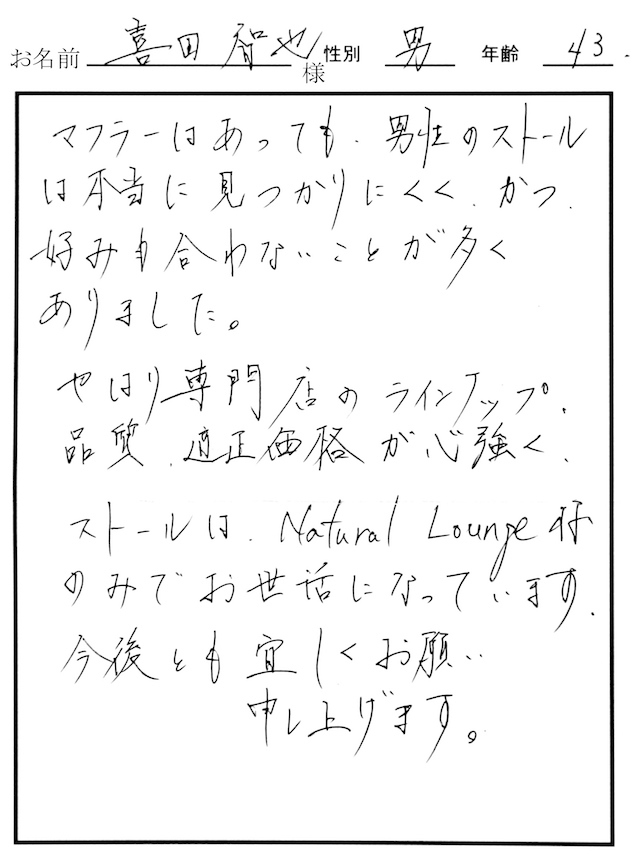 お名前 喜田智也 様 性別 男 年齢 43.
マフラーはあっても、男性のストール
は本当に見つかりにくく、かつ、
好みも合わないことが多く
ありました。
やはり専門店のラインナップ、
品質、適正価格が心強く、
ストールは、Natural Lounge様
のみでお世話になっています。
今後とも宜しくお願い
申し上げます。